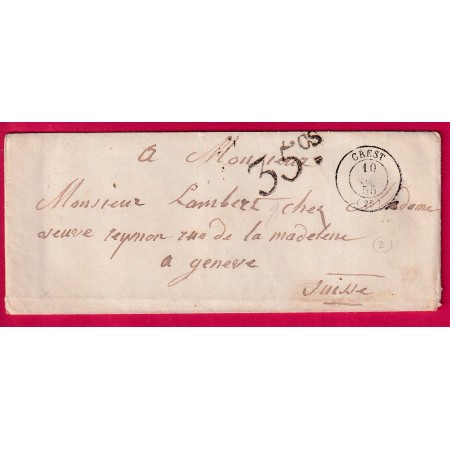 a Monsieur
35 cs
CREST
10
55
(25)
Monsieur Lambert chez Madame
veuve reymon rue de la madeleine
(2)
a geneve
Suisse